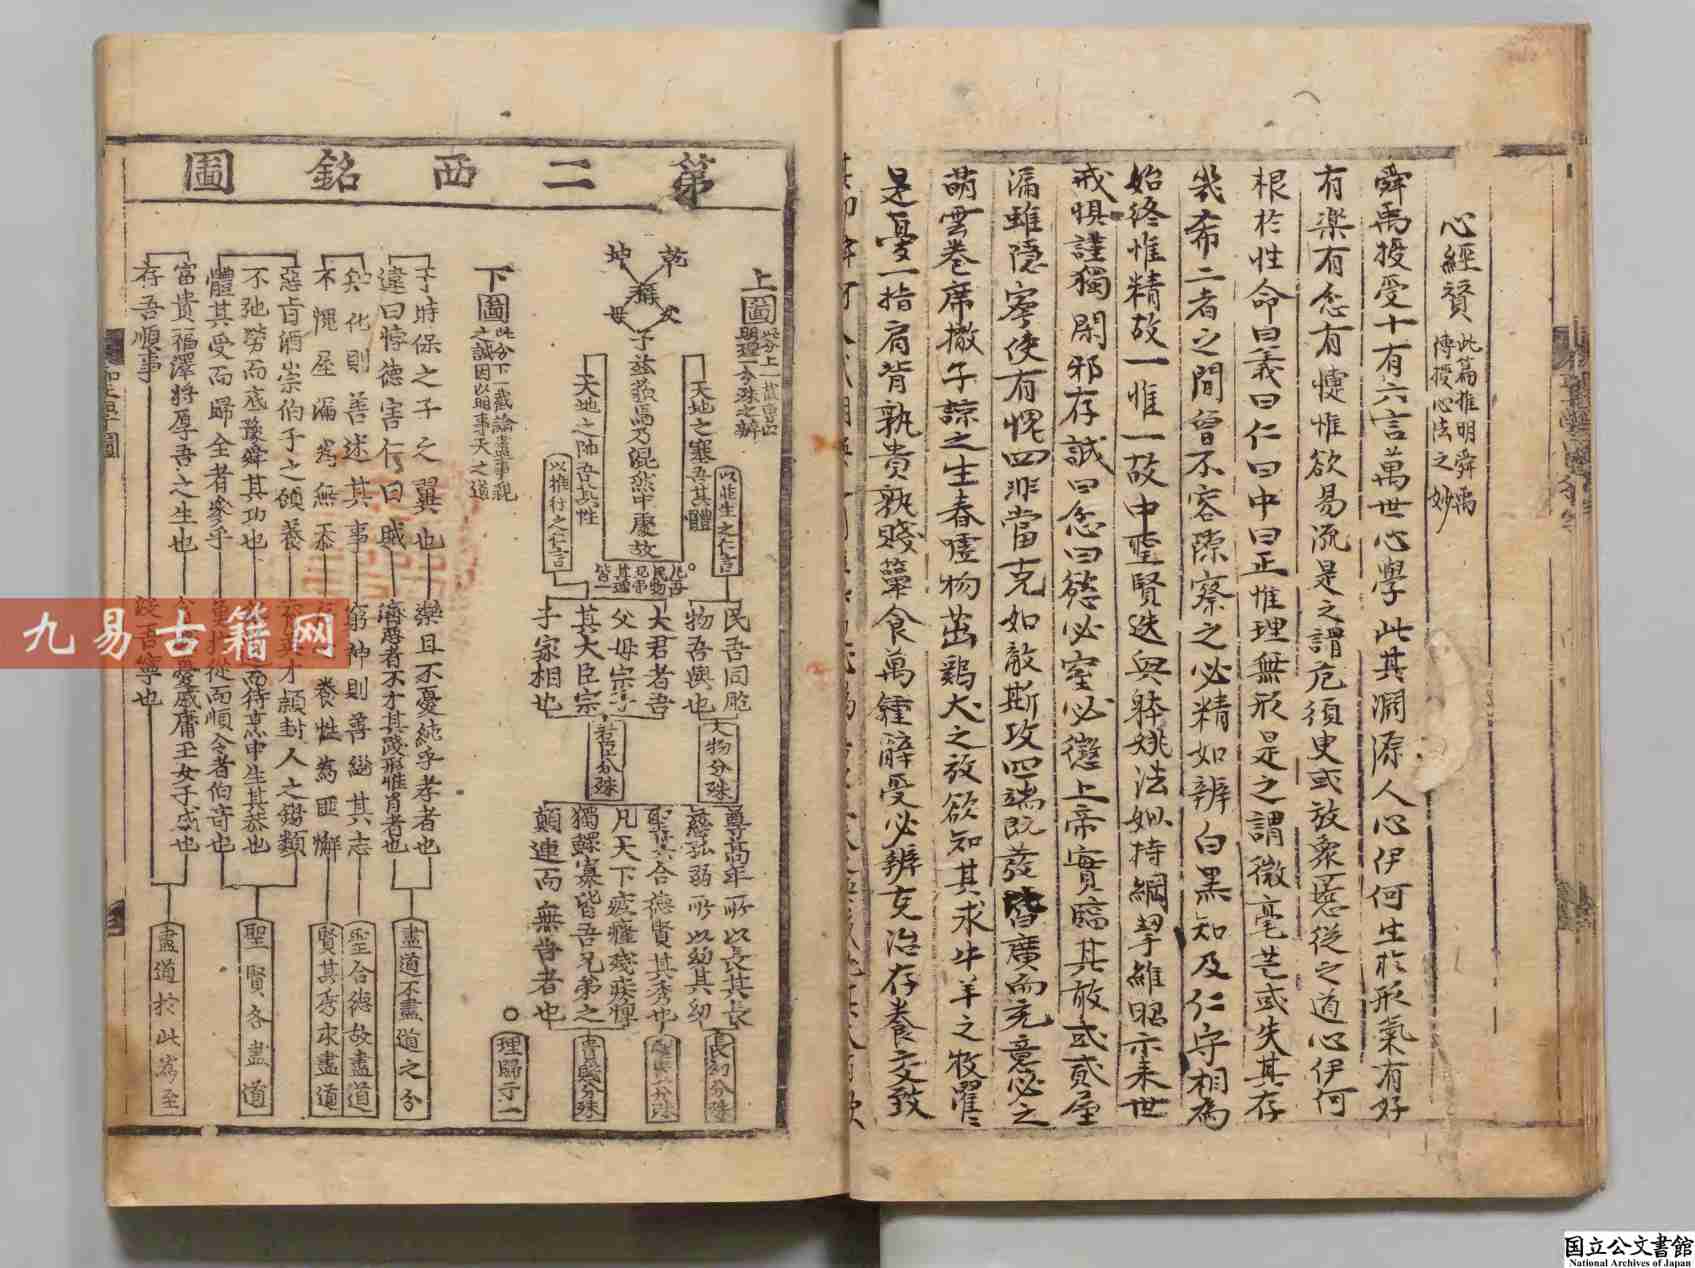 心經贊
此篇推明舜禹
傳授心法之妙
舜禹授受十有六言萬世心學此其淵源人心伊何生於形氣有好
有樂有忿有懥惟欲易流是之謂危須臾或放衆慝從之道心伊何
根於性命曰義曰仁曰中曰正惟理無形是之謂微毫芒或失其存
幾希二者之間曾不容隙察之必精如辨白黑知及仁守相為
始終惟精故一惟一故中聖賢迭興體姚法姒持綱挈維昭示來世
戒懼謹獨閑邪存誠曰忿曰慾必窒必懲上帝實臨其敢或貳屋
漏雖隱寧使有愧四非當克如敵斯攻四端既發皆廣而充意必之
萌雲卷席撤子諒之生春噓物茁鷄犬之放欲知其求牛羊之牧濯濯
是憂一指肩背孰貴孰賤簞食萬鍾辭受必辨克治存養交致
第二西銘圖
上圖
此分上一截專以
明理一分殊之辨
乾
坤
稱
父
母
子茲藐焉乃混然中處故
天地之塞吾其體
天地之帥吾其性
以推行之仁言
民吾同胞
物吾與也
大君者吾
父母宗子
其大臣宗
子家相也
人物分殊
君臣分殊
尊高年所以長其長
慈孤弱所以幼其幼
聖其合德賢其秀也
凡天下疲癃殘疾惸
獨鰥寡皆吾兄弟之
顛連而無告者也
長幼分殊
理歸于一
下圖
此分下一截論盡事親
之誠因以明事天之道
于時保之子之翼也
樂且不憂純乎孝者也
違曰悖德害仁曰賊
濟惡者不才其踐形惟肖者也
知化則善述其事
窮神則善繼其志
不愧屋漏為無忝
養性為匪懈
惡旨酒崇伯子之顧養
英才潁封人之錫類
不弛勞而底豫舜其功也
而待烹申生其恭也
體其受而歸全者參乎
從而順令者伯奇也
富貴福澤將厚吾之生也
憂戚庸玉女于成也
存吾順事
沒吾寧也
盡道不盡道之分
聖合德故盡道
賢其秀求盡道
聖賢各盡道
盡道於此為至
九易古籍网
国立公文書館
National Archives of Japan